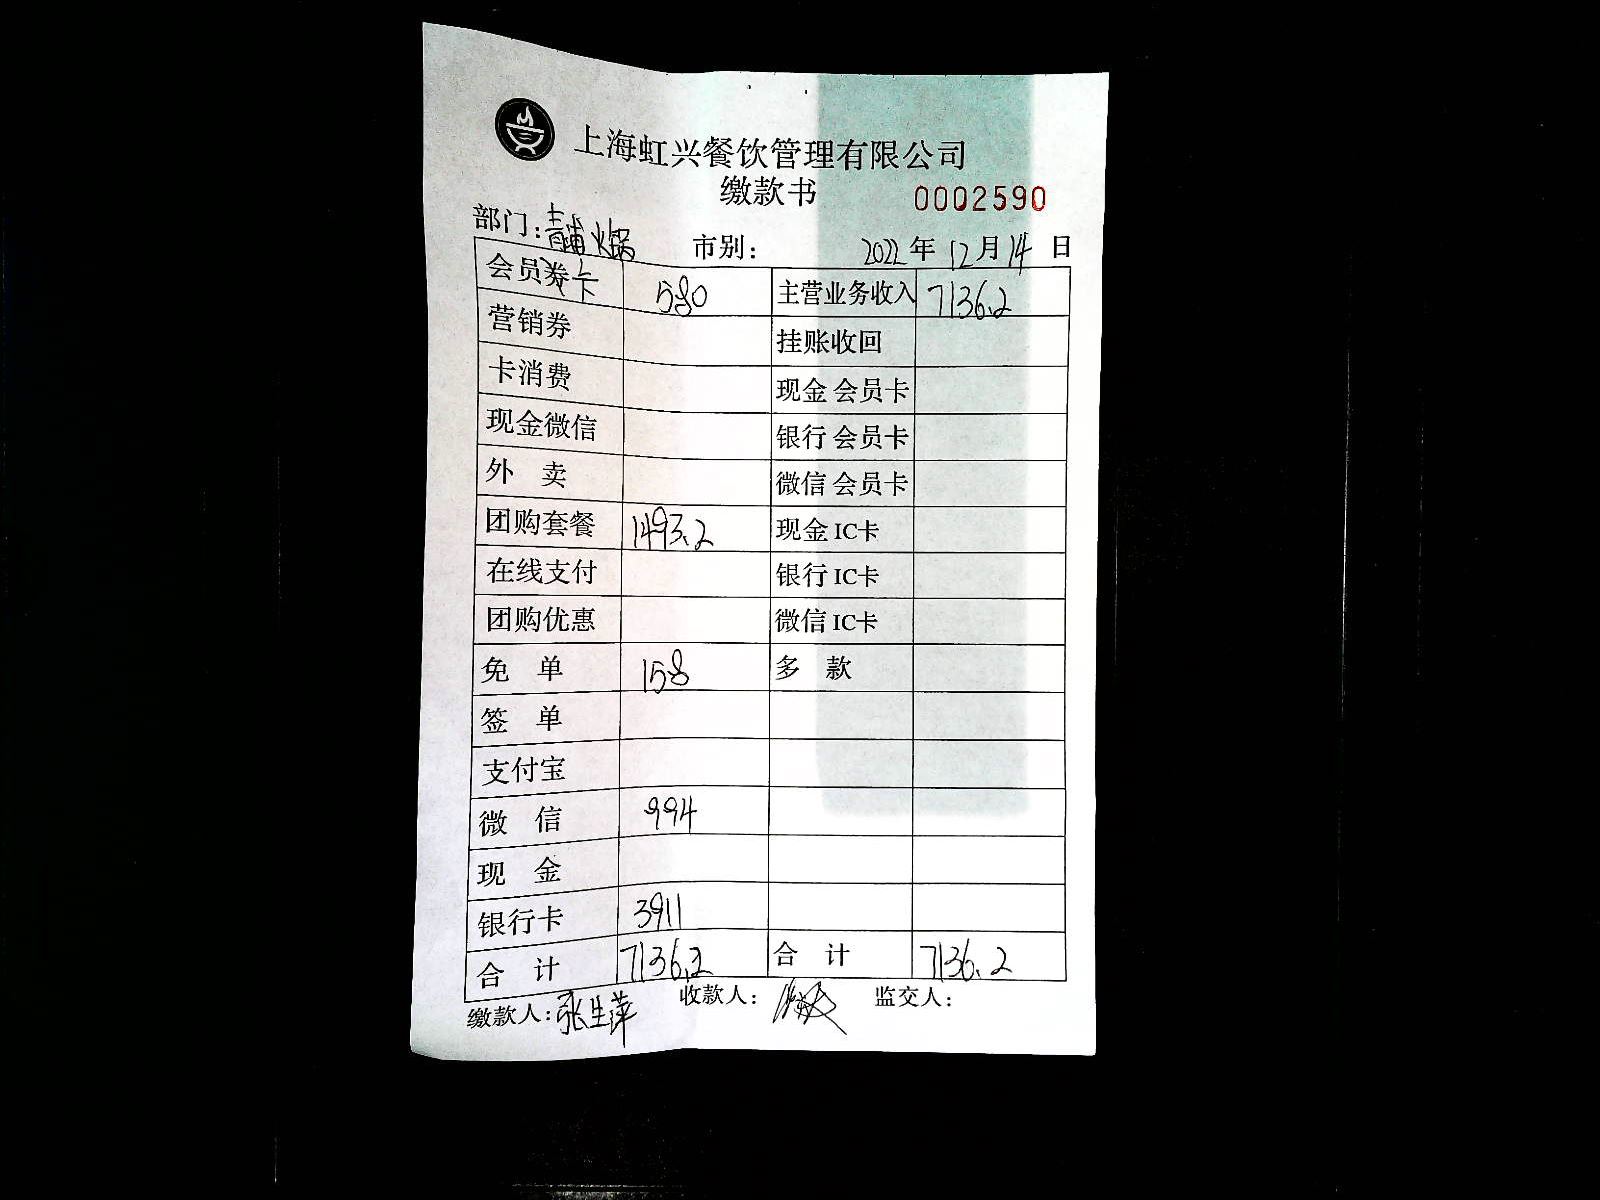 上海虹兴餐饮管理有限公司
缴款书 0002590
部门：青浦火锅 市别： 2022年12月14日
会员券卡 580 主营业务收入 7136.2
营销券 挂账收回
卡消费 现金 会员卡
现金微信 银行 会员卡
外 卖 微信 会员卡
团购套餐 1493.2 现金 IC卡
在线支付 银行 IC卡
团购优惠 微信 IC卡
免 单 158 多 款
签 单
支付宝
微 信 994
现 金
银行卡 3911
合 计 7136.2 合 计 7136.2
缴款人：张生萍 收款人： 监交人：